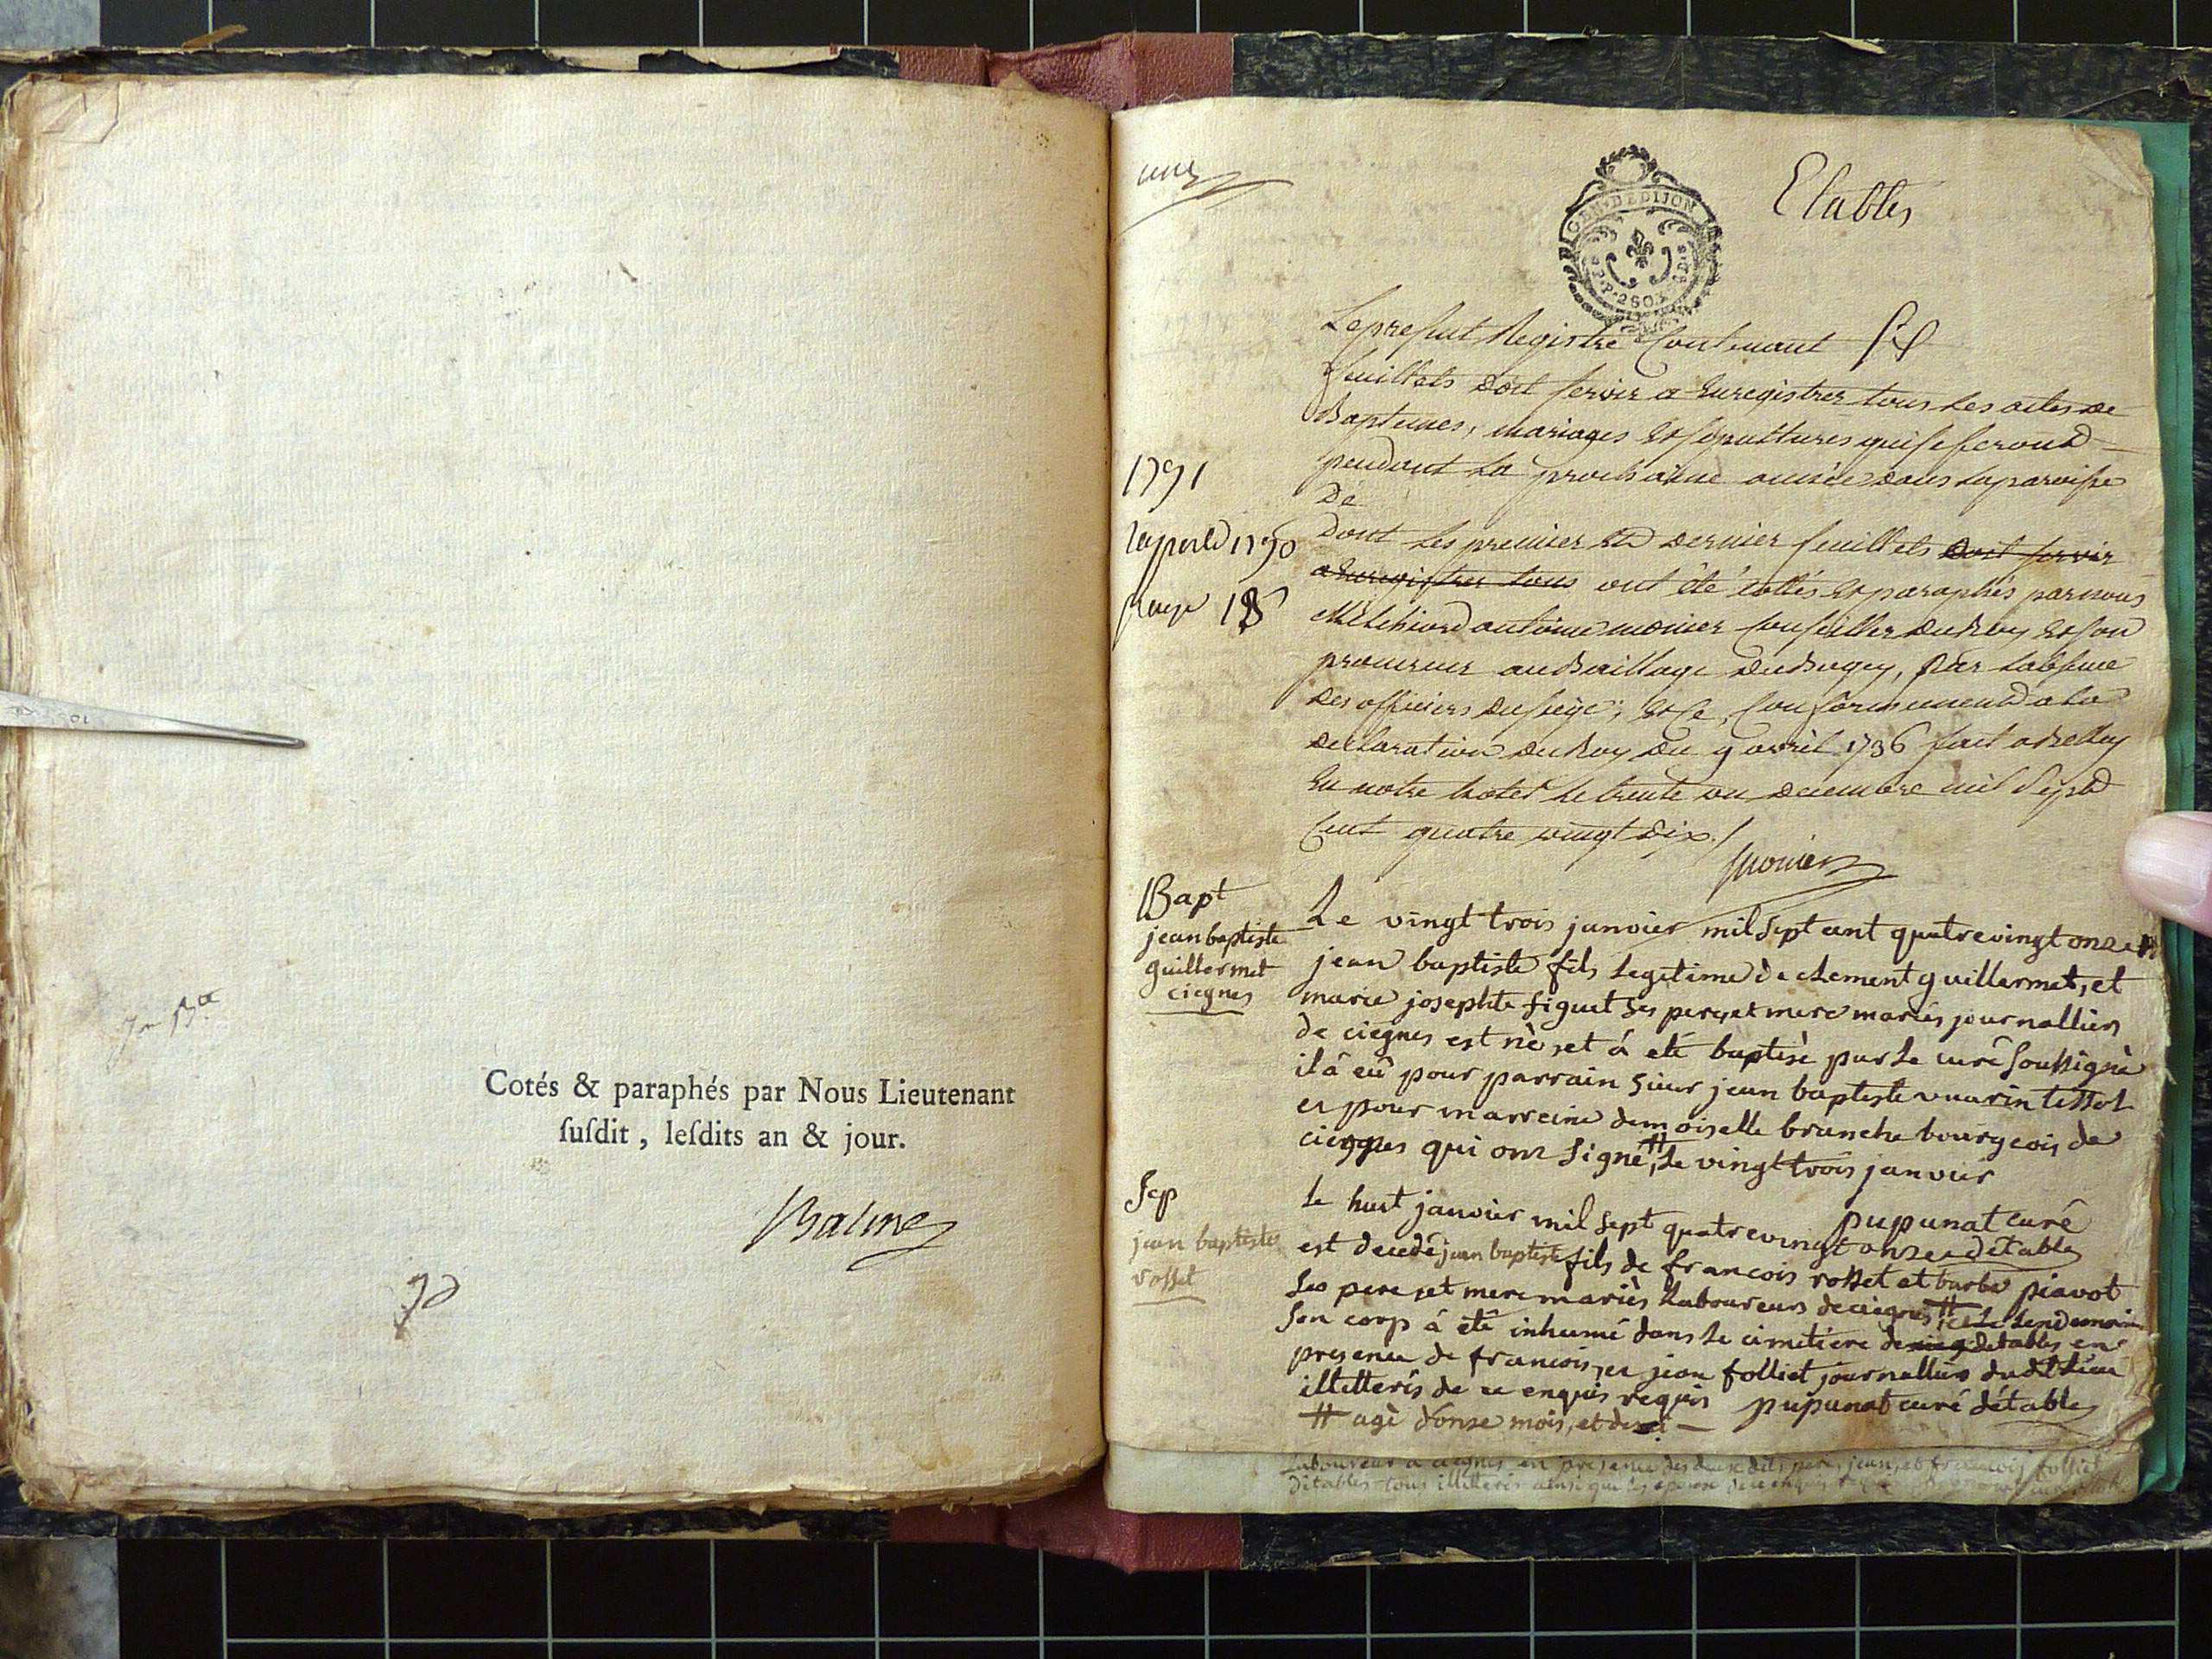 Cotés & paraphés par Nous Lieutenant
ſuſdit, leſdits an & jour.
Balme
90
une
GEN. DE DIJON
Etables
Le present Registre Contenant six
feuillets doit servir a Enregistrer tous Les actes de
Baptemes, mariages et sepultures qui se feront
pendant La prochaine année dans La paroisse
De
Dont Les premier et dernier feuillets doit servir
a Enregistrer tous ont été cottés et paraphés par nous
Melchiord antoine monier Conseiller du Roy et son
procureur au Baillage du Bugey, par L'absence
des officiers du siege, et ce, Conformement a la
declaration du Roy du 9 avril 1736 fait a Belley
En notre hotel Le trente un decembre mil Sept
Cent quatre vingt dix ./
monier
1791
1790
18
Bapt
jean baptiste
guillermet
ciegnes
Le vingt trois janvier mil sept cent quatrevingt onze
jean baptiste fils legetime de clement guillermet, et
marie josephte figuet ses pere, et mere mariés journalliers
de ciegnes est nè, et á eté baptisè par le curé soussignè
il â eû pour parrain sieur jean baptiste vuarin tissot
et pour marreine demoiselle branche bourgeois de
ciegnes qui ont signé # le vingt trois janvier
pupunat curé
d'étables
Sep
jean baptiste
rosset
le huit janvier mil sept quatrevingt onze
est decedé jean baptiste fils de francois rosset et barbe piavot
ses pere, et mere mariès laboureurs de ciegnes # et le lendemain
son corp á été inhumé dans le cimetiere de cieg detables en
presence de francois, et jean folliet journalliers dudit lieu
illetterés de ce enquis requis pupunat curé détables
# agè d'onze mois, et demi —
Laboureur a ciegnes en presence des deux dits pere, jean, et francois folliet
détables tous illetterés ainsi que les epoux de ce enquis requis